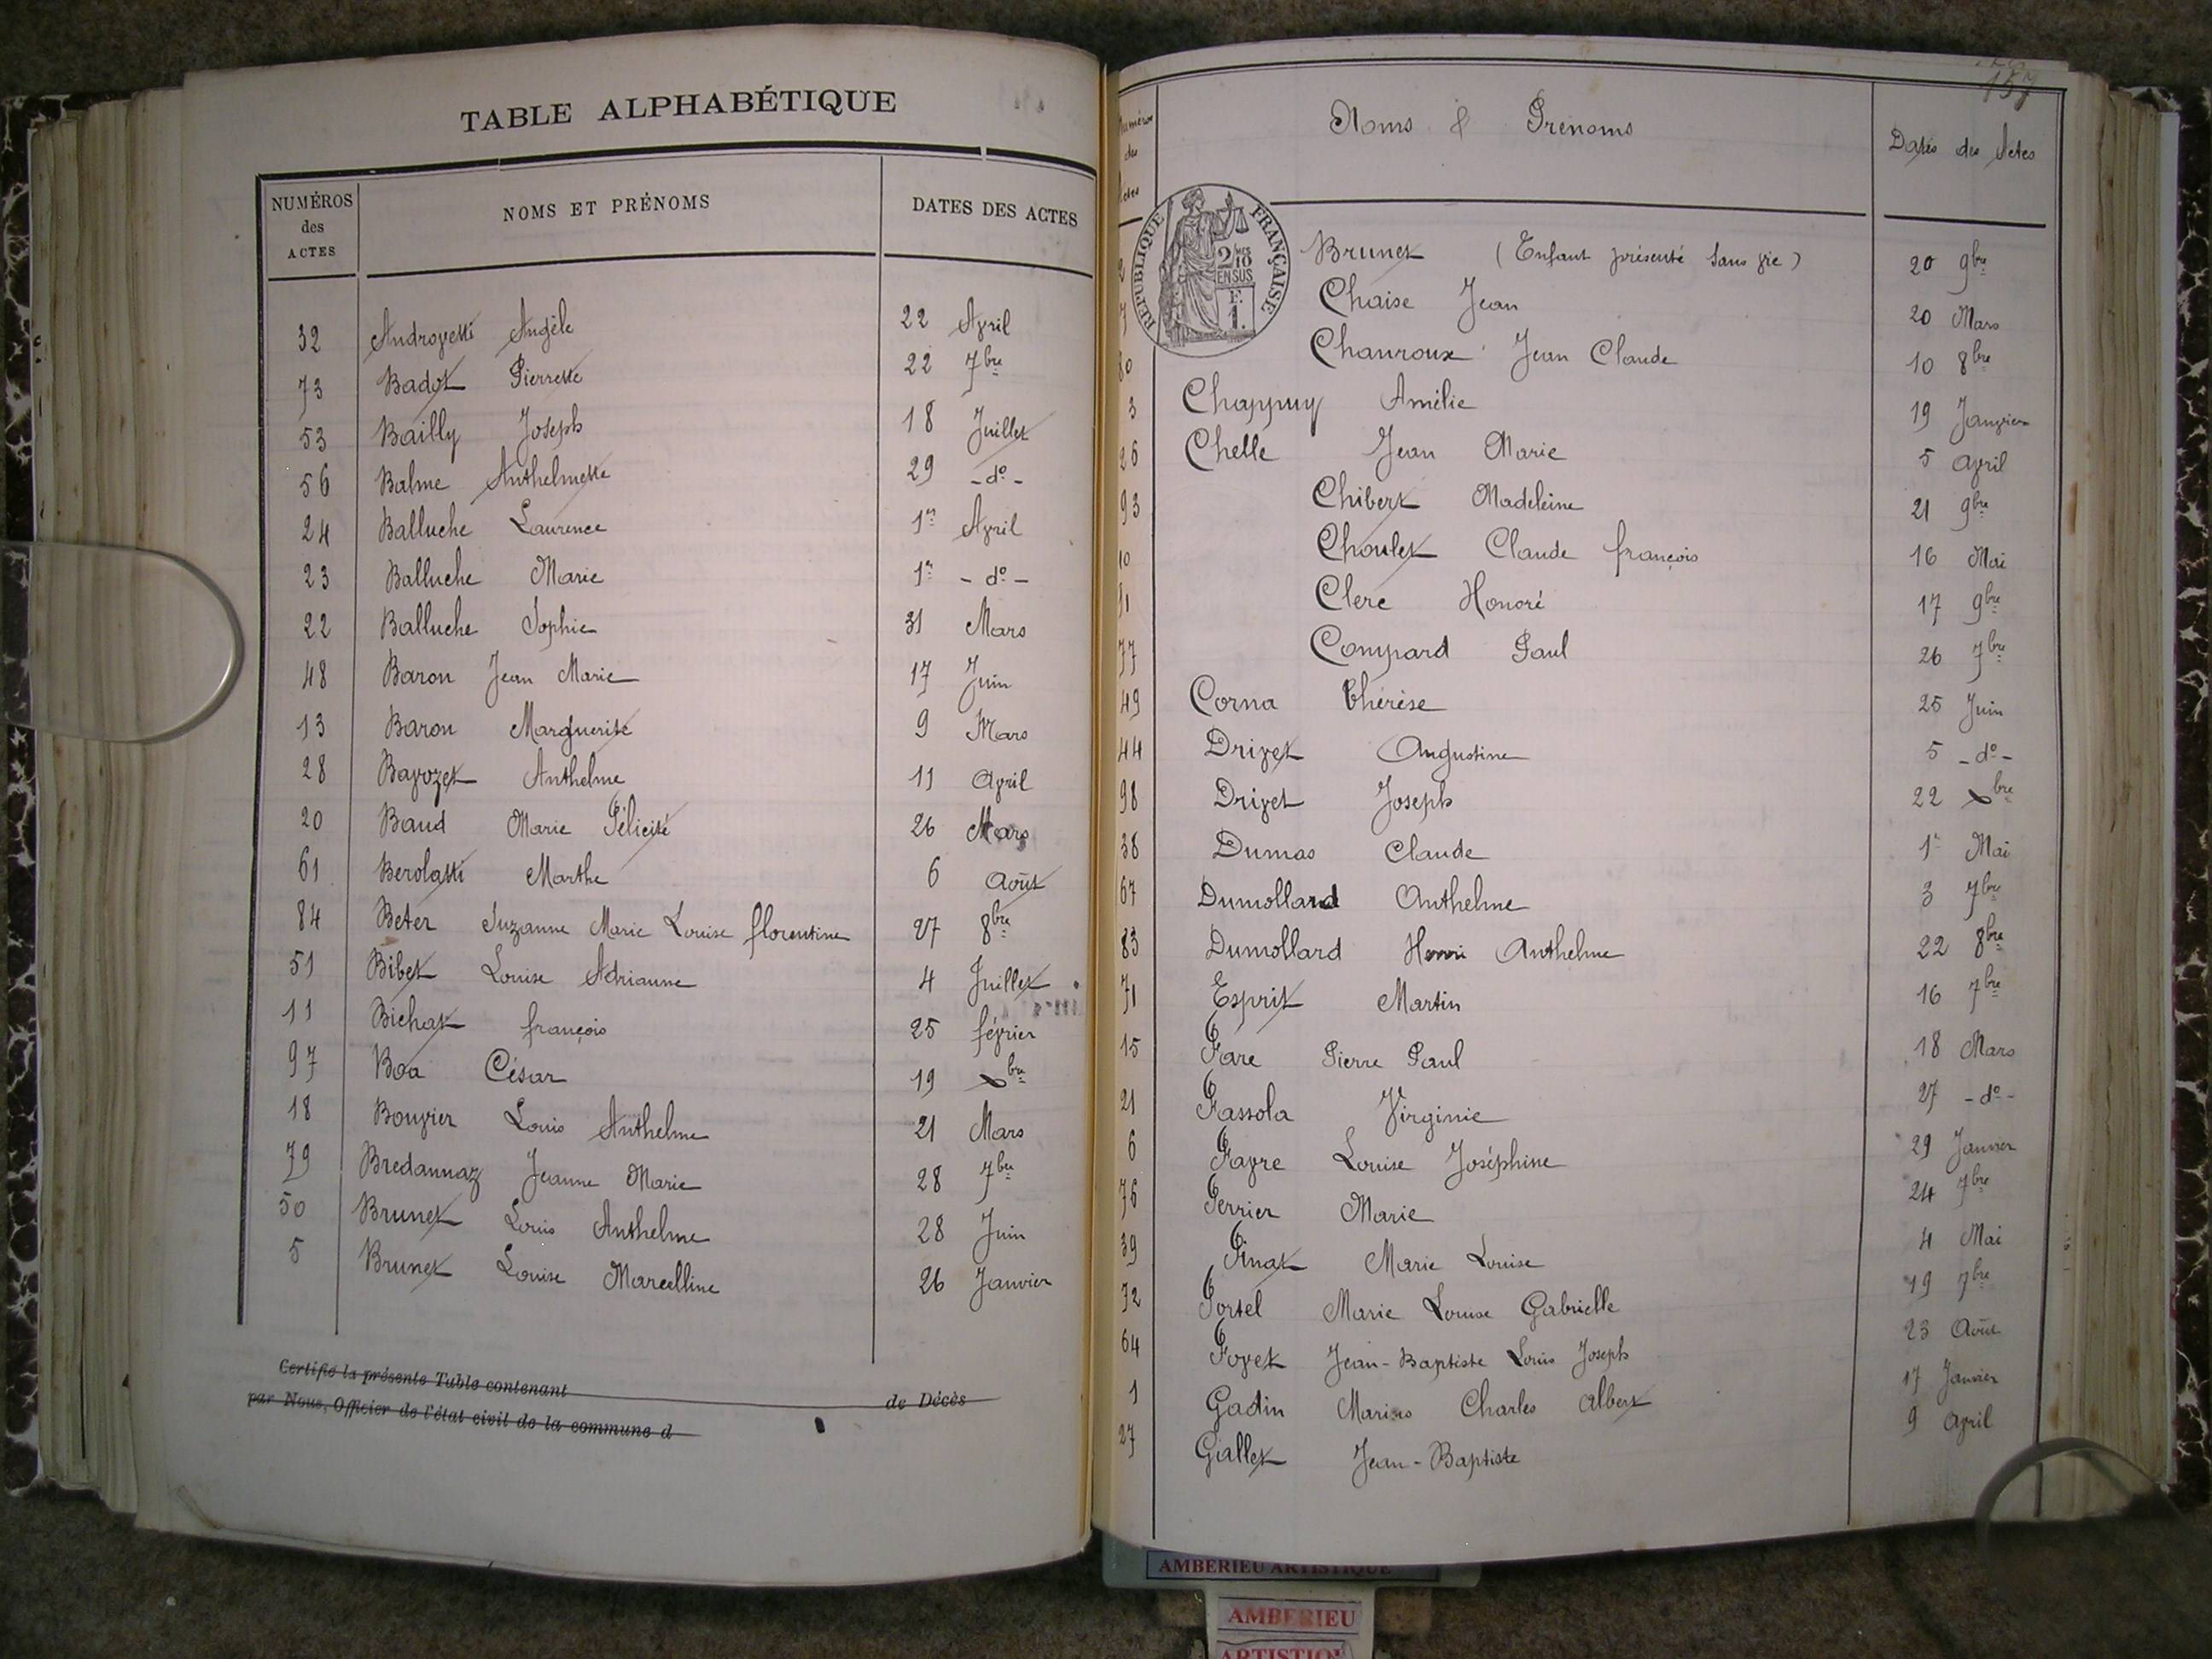 TABLE ALPHABÉTIQUE
NUMÉROS des ACTES NOMS ET PRÉNOMS DATES DES ACTES
32 Androvetti Angèle 22 Avril
73 Badot Pierrette 22 7bre
53 Bailly Joseph 18 Juillet
56 Balme Anthelmette 29 - do -
24 Balluche Laurence 1er Avril
23 Balluche Marie 1er - do -
22 Balluche Sophie 31 Mars
48 Baron Jean Marie 17 Juin
13 Baron Marguerite 9 Mars
28 Bavozet Anthelme 11 Avril
20 Baud Marie Félicité 26 Mars
61 Berolatti Marthe 6 Août
84 Beter Suzanne Marie Louise florentine 27 8bre
51 Bibet Louise Adrianne 4 Juillet
11 Bichat françois 25 février
97 Boa César 19 Xbre
18 Bouvier Louis Anthelme 21 Mars
79 Bredannaz Jeanne Marie 28 7bre
50 Brunet Louis Anthelme 28 Juin
5 Brunet Louise Marcelline 26 Janvier
Certifié la présente Table contenant de Décès
par Nous, Officier de l'état civil de la commune d
157
Noms & Prénoms Dates des Actes
des
RÉPUBLIQUE FRANÇAISE
2/10 EN SUS
F. 1.
2 Brunet (Enfant présenté sans vie) 20 9bre
7 Chaise Jean 20 Mars
80 Chanroux Jean Claude 10 8bre
3 Chappuy Amélie 19 Janvier
26 Chelle Jean Marie 5 Avril
93 Chibert Madeleine 21 9bre
10 Choulet Claude françois 16 Mai
91 Clerc Honoré 17 9bre
77 Compard Paul 26 7bre
49 Corna Thérèse 25 Juin
44 Drivet Augustine 5 - do -
98 Drivet Joseph 22 Xbre
38 Dumas Claude 1er Mai
67 Dumollard Anthelme 3 7bre
83 Dumollard Henri Anthelme 22 8bre
71 Esprit Martin 16 7bre
15 Fare Pierre Paul 18 Mars
21 Fassola Virginie 27 - do -
6 Favre Louise Joséphine 29 Janvier
76 Ferrier Marie 24 7bre
39 Finat Marie Louise 4 Mai
72 Fortel Marie Louise Gabrielle 19 7bre
64 Fovet Jean-Baptiste Louis Joseph 23 Août
1 Gadin Marius Charles Albert 17 Janvier
27 Gallet Jean-Baptiste 9 Avril
AMBERIEU ARTISTIQUE
AMBERIEU
ARTISTIQU